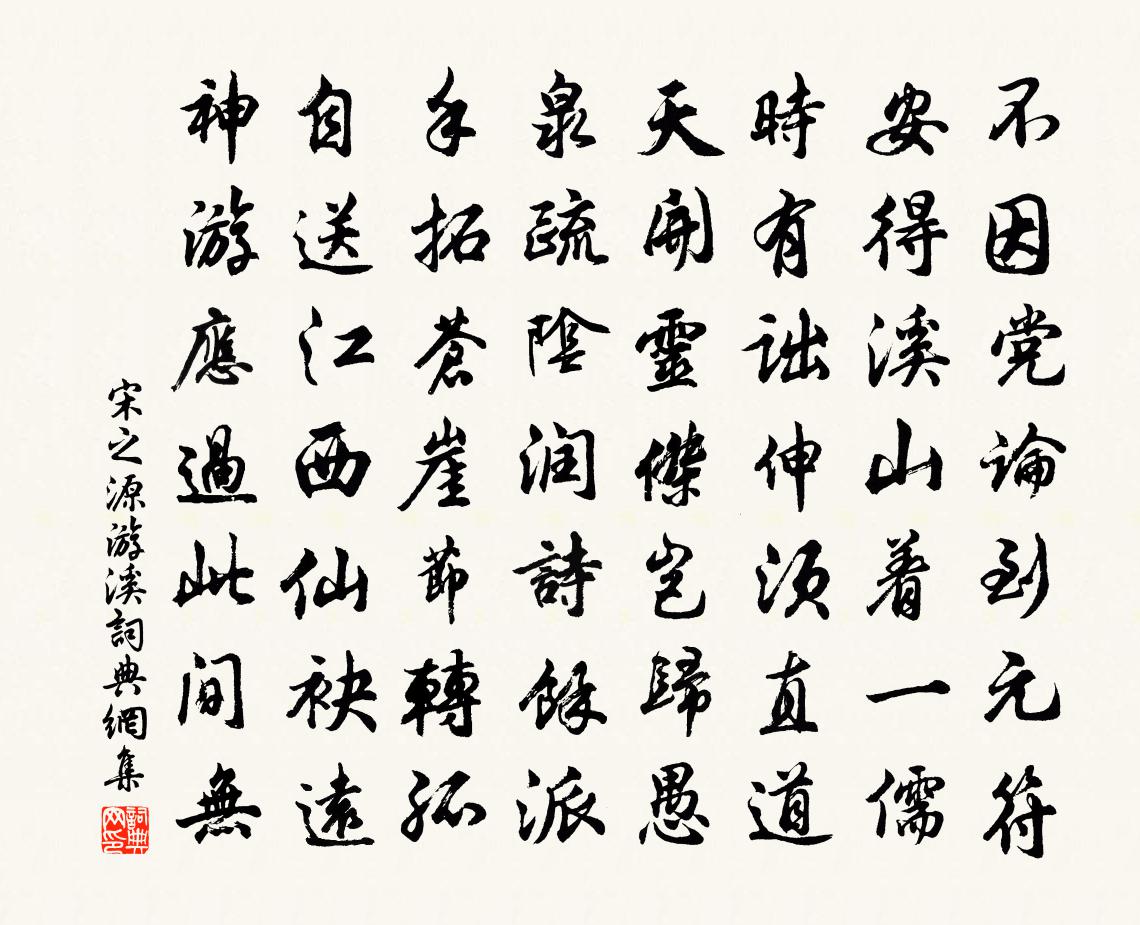 不因党论到元符
安得溪山着一儒
時有詘伸須直道
天開靈傑豈歸愚
泉疏陰润詩餘派
手拓蒼崖節轉孤
自送江西仙袂遠
神游應過此间無
宋之源游溪詞典網集
詞典网印